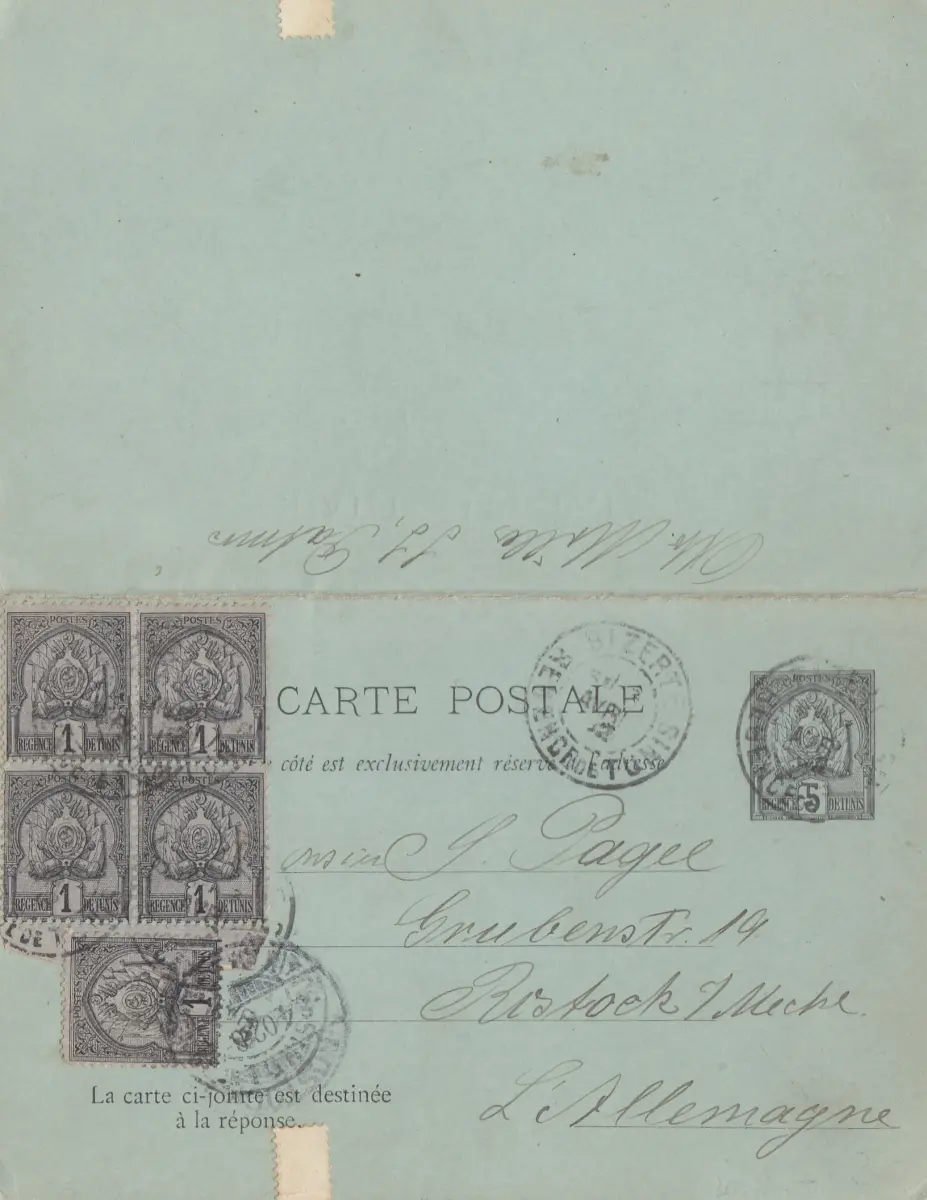 POSTES
1
REGENCE DE TUNIS
POSTES
1
REGENCE DE TUNIS
CARTE POSTALE
BIZERTE
REGENCE DE TUNIS
5
REGENCE DE TUNIS
côté est exclusivement réservé à l'adresse
POSTES
1
REGENCE DE TUNIS
POSTES
1
REGENCE DE TUNIS
onsieur S. Pagee
Grubenstr. 19
Rostock
L'Allemagne
POSTES
1
REGENCE DE TUNIS
La carte ci-jointe est destinée
à la réponse.